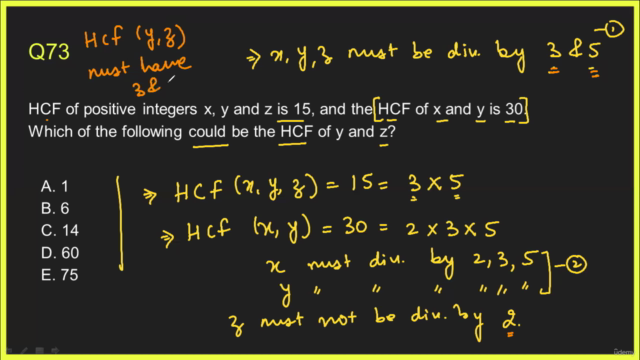 Q73
HCf (y,z)
must have
3 &
⇒ x, y, z must be div. by 3 & 5 —①
HCF of positive integers x, y and z is 15, and the HCF of x and y is 30.
Which of the following could be the HCF of y and z?
A. 1
B. 6
C. 14
D. 60
E. 75
⇒ HCf (x, y, z) = 15 = 3 × 5
⇒ HCf (x, y) = 30 = 2 × 3 × 5
x must div. by 2, 3, 5
y " " " " " " —②
z must not be div. by 2.
ûdemy